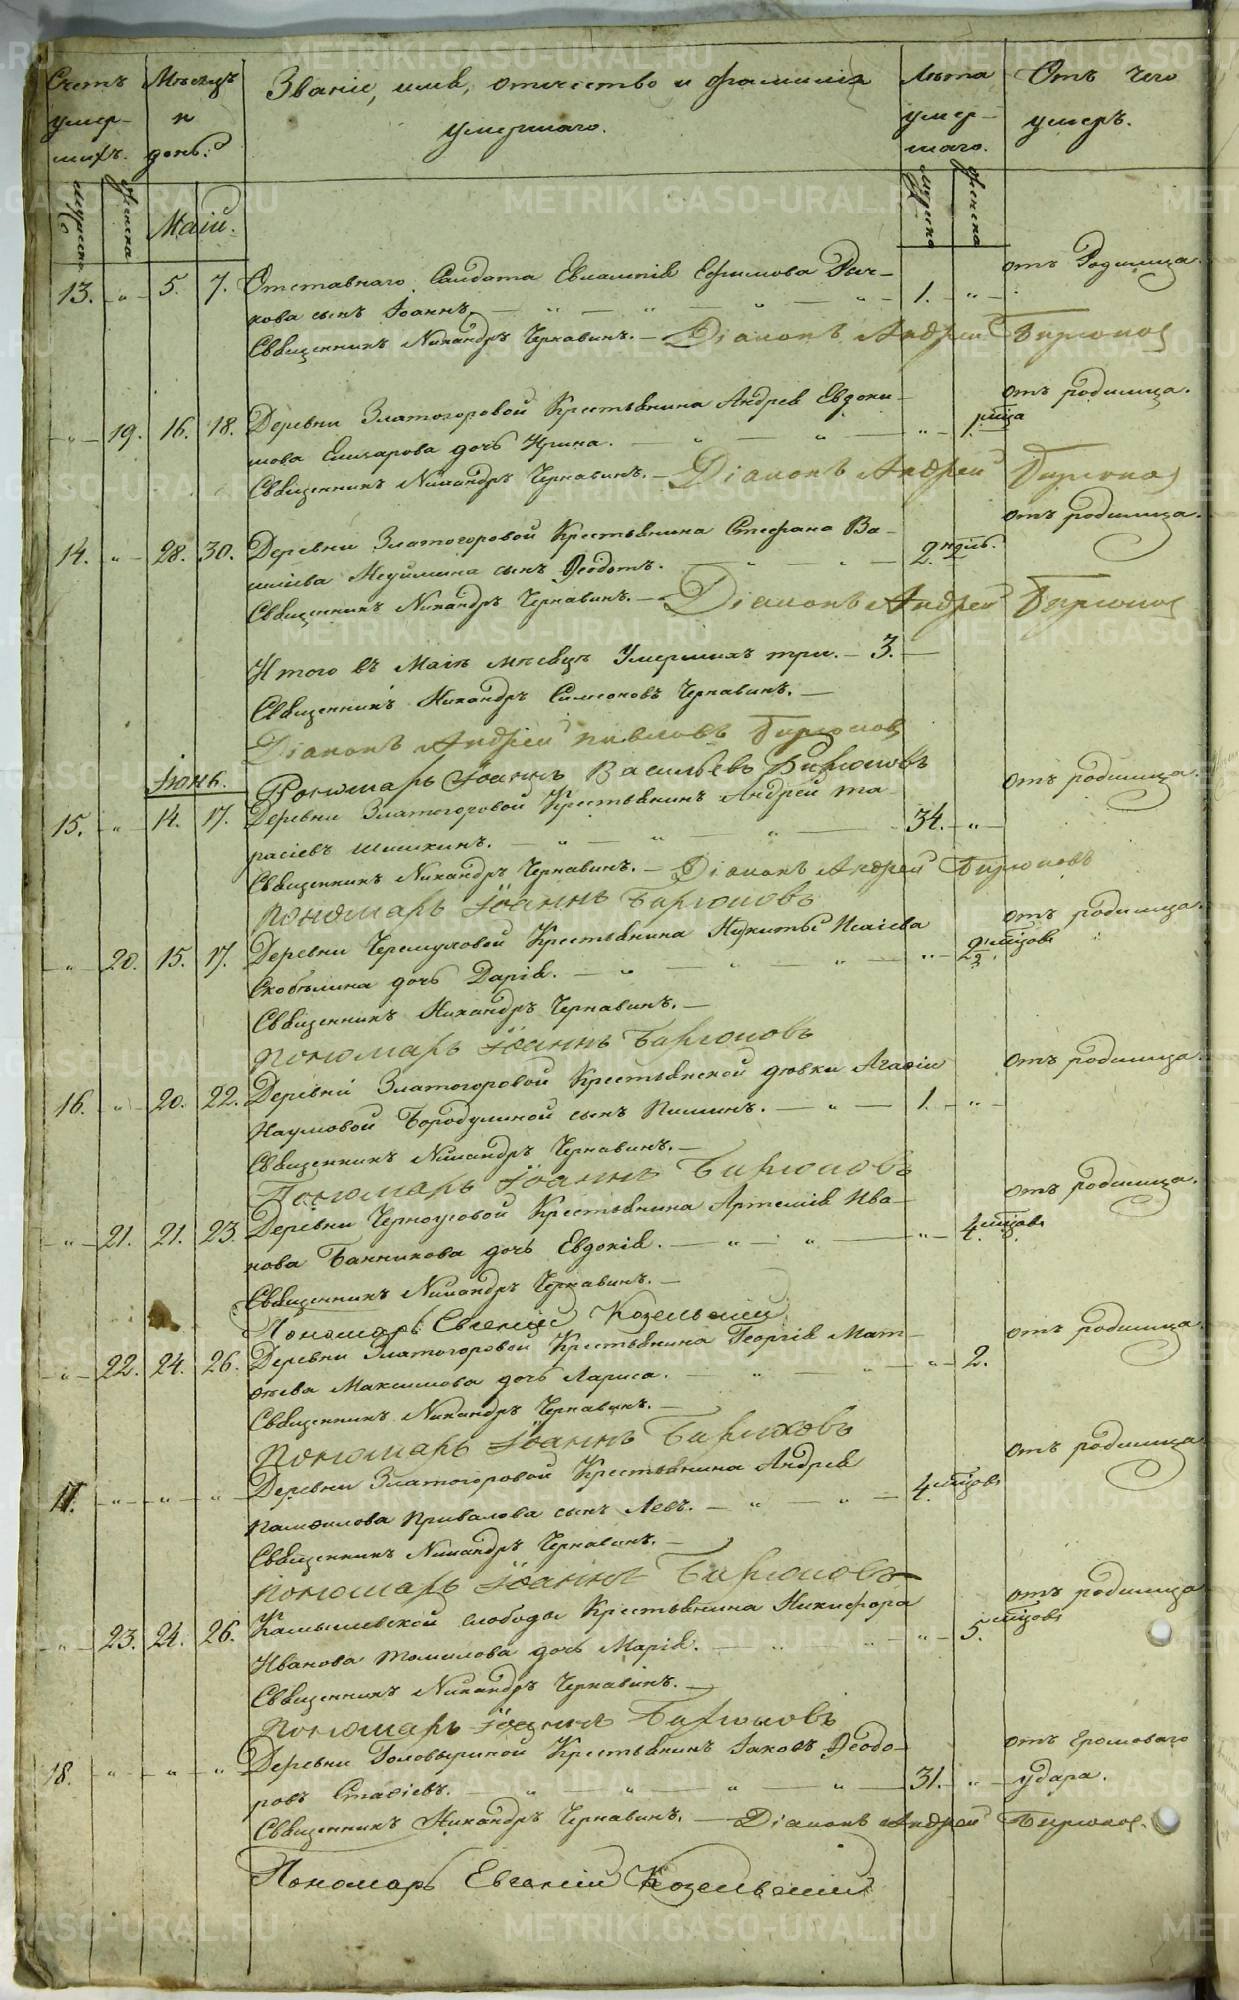 Счетъ умер-шихъ.
Мѣсяцъ и день.
Званіе, имя, отчество и фамилія умершаго.
Лѣта умер-шаго.
Отъ чего умеръ.
мужеска
женска
Маій.
мужеска
женска
13. " 5. 7. Отставнаго Салдата Евлампія Ефимова Рач-
кова сынъ Іоаннъ. 1. " отъ Родимца.
Священникъ Никандръ Чернавинъ. Діаконъ Андрей Бирюков
" 19. 16. 18. Деревни Златогоровой Крестьянина Андрея Евдоки-
мова Елизарова дочь Ирина. " 1. мца отъ родимца.
Священникъ Никандръ Чернавинъ. Діаконъ Андрей Бирюков
14. " 28. 30. Деревни Златогоровой Крестьянина Стефана Ва-
сильева сынъ Ѳеодотъ. 2. ндѣль. отъ родимца.
Священникъ Никандръ Чернавинъ. Діаконъ Андрей Бирюков
Итого въ Маіѣ мѣсяцѣ Умершихъ три. 3.
Священникъ Никандръ Симеоновъ Чернавинъ.
Діаконъ Андрей Павловъ Бирюков
Пономарь Іоаннъ Васильевъ Бирюковъ
Іюнь.
15. " 14. 17. Деревни Златогоровой Крестьянинъ Андрей та-
расіевъ Шишкинъ. 34. " отъ родимца.
Священникъ Никандръ Чернавинъ. Діаконъ Андрей Бирюковъ
Пономарь Іоаннъ Бирюковъ
" 20. 15. 17. Деревни Черемуховой Крестьянина Никиты Исаіева
Скобѣлина дочь Дарія. " 2. мцовъ отъ родимца.
Священникъ Никандръ Чернавинъ.
Пономарь Іоаннъ Бирюковъ
16. " 20. 22. Деревни Златогоровой Крестьянской дѣвки Агафіи
Наумовой Бородулиной сынъ Пиминъ. 1. " отъ родимца.
Священникъ Никандръ Чернавинъ.
Пономарь Іоаннъ Бирюковъ
" 21. 21. 23. Деревни Черноусовой Крестьянина Артемія Ива-
нова Банникова дочь Евдокія. " 4. мцовъ отъ родимца.
Священникъ Никандръ Чернавинъ.
Пономарь Евгеній Козельскій
" 22. 24. 26. Деревни Златогоровой Крестьянина Георгія Мат-
ѳѣева Максимова дочь Лариса. " 2. отъ родимца.
Священникъ Никандръ Чернавинъ.
Пономарь Іоаннъ Бирюковъ
17. " " " Деревни Златогоровой Крестьянина Андрея
Памфилова Привалова сынъ Левъ. 4. мцовъ отъ родимца
Священникъ Никандръ Чернавинъ.
Пономарь Іоаннъ Бирюковъ
" 23. 24. 26. Камышевской слободы Крестьянина Никифора
Иванова Томилова дочь Марія. " 5. мцовъ отъ родимца
Священникъ Никандръ Чернавинъ.
Пономарь Іоаннъ Бирюковъ
18. " " " Деревни Головыриной Крестьянинъ Іаковъ Ѳеодо-
ровъ Стасіевъ. 31. " отъ громоваго удара.
Священникъ Никандръ Чернавинъ. Діаконъ Андрей Бирюков.
Пономарь Евгеній Козельскій
METRIKI.GASO-URAL.RU